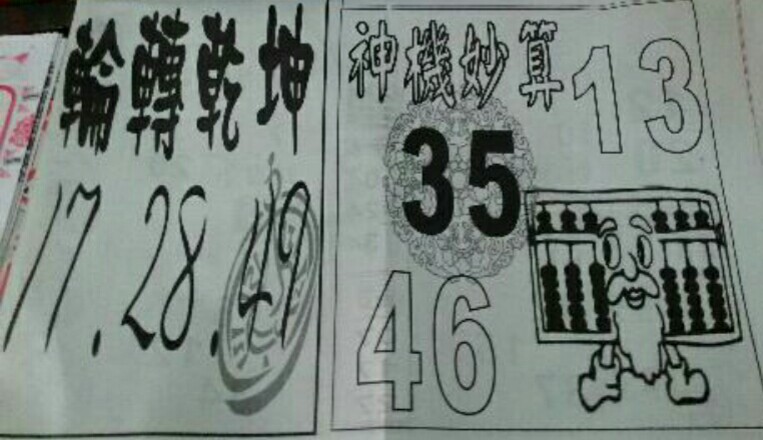 輪轉乾坤
17.28.49
神機妙算
13
35
46